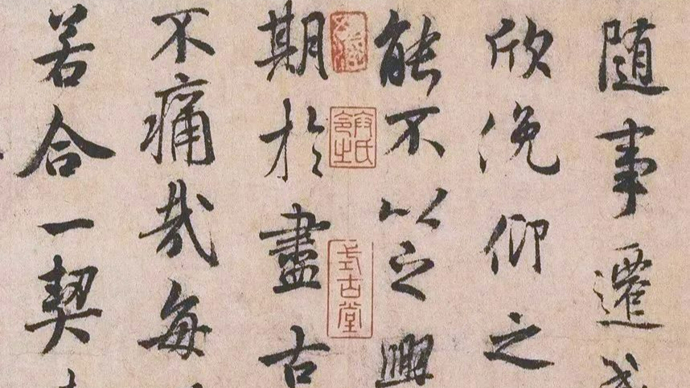 随事遷
欣俛仰之
能不以之興
式古堂
期於盡古
不痛哉每
若合一契